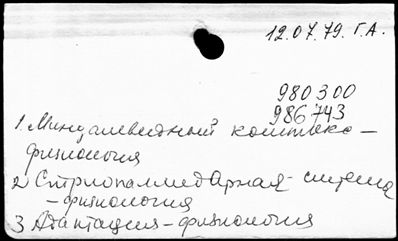 12.07.79. Г.А.
980300
986743
1. Миндалевидный комплекс –
физиология
2 Стриопаллидарная система
– физиология
3 Адаптация – физиология